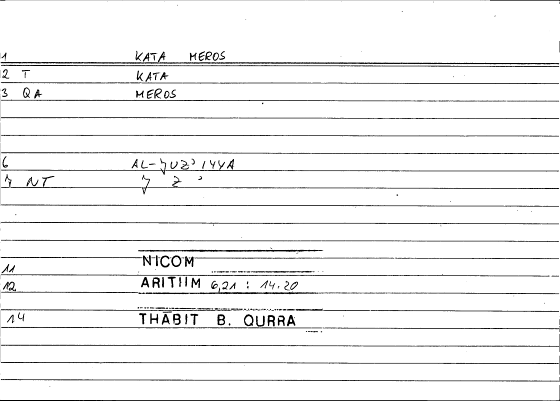 1 KATA MEROS
2 T KATA
3 QA MEROS
6 AL-ʒUZʾIYYA
ʒ NT ʒ Z ʾ
11 NICOM
12 ARITIIM 6,21 : 14.20
14 THĀBIT B. QURRA